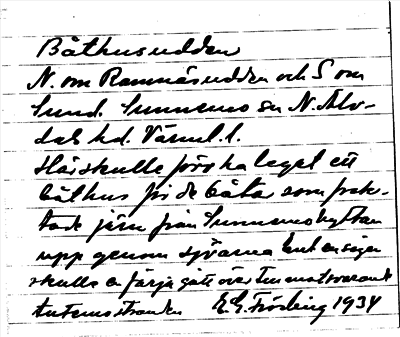 Båthusudden
N. om Ramnäsudden och S om
Sund. Sunnemo sn N. Älv-
dals hd. Värml. l.
Här skulle förr ha legat ett
båthus för de båtar som frak-
tade järn från Sunnemohyttan
upp genom sjöarna Enl. en sägen
skulle en färja gått över till motsvarande
stranden E.G. Fröding 1934